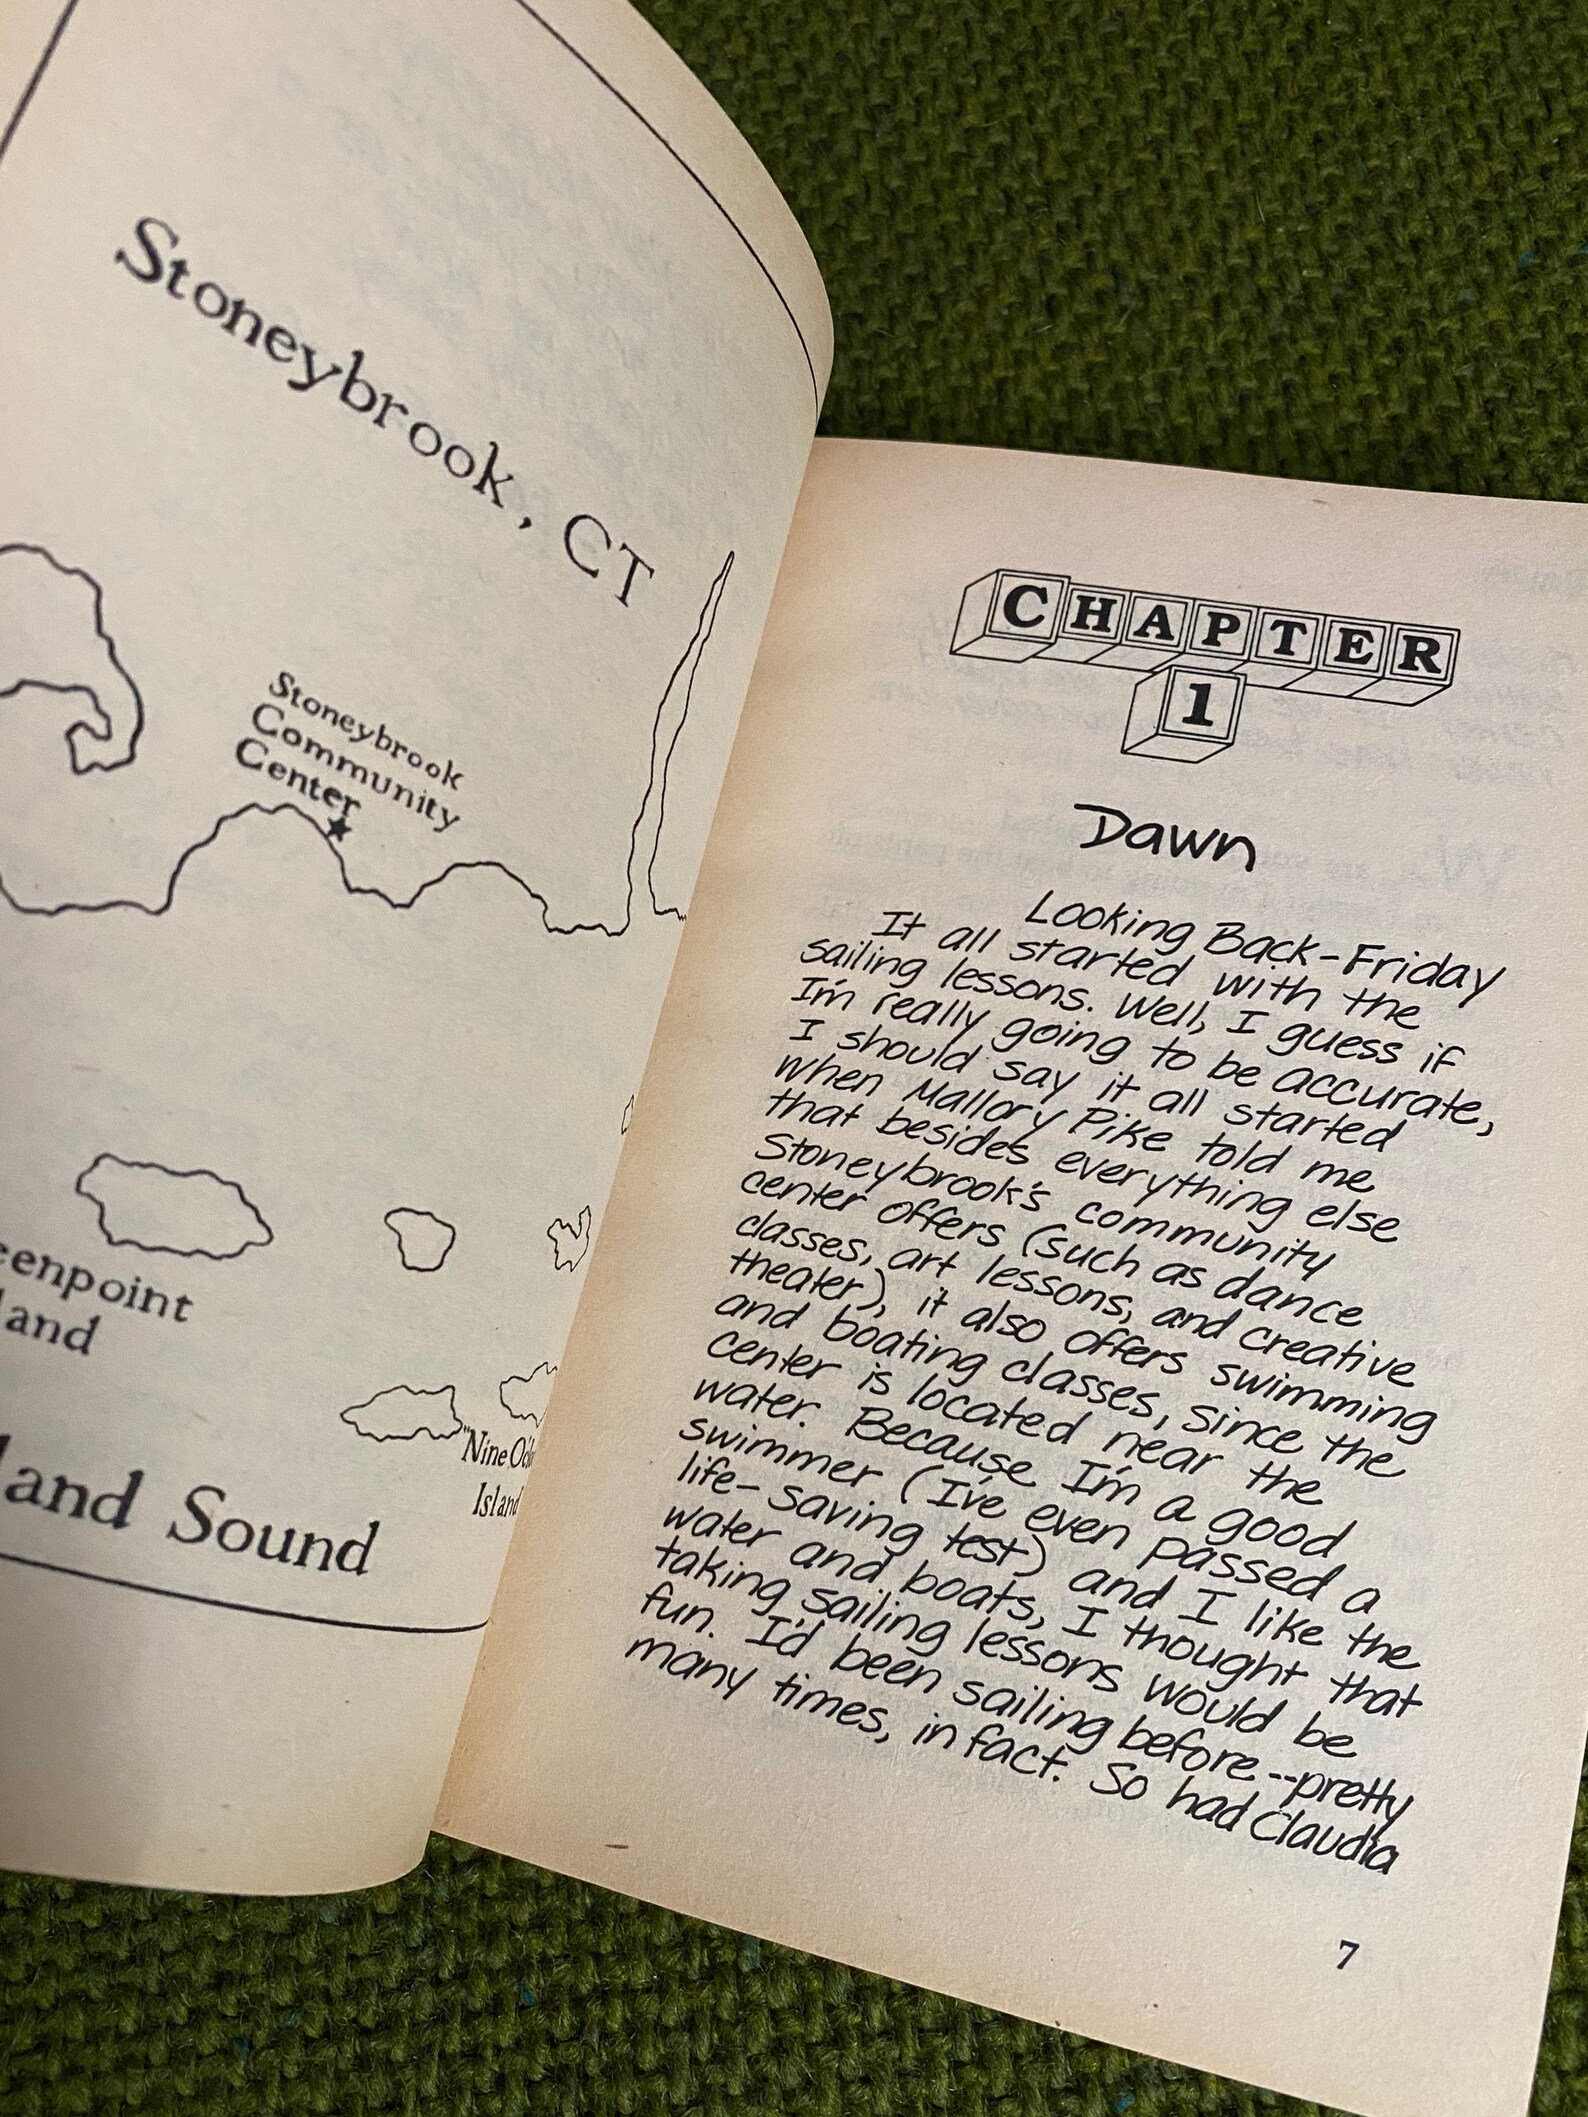 Stoneybrook, CT
Stoneybrook
Community
Center
Sound
Island
CHAPTER
1
Dawn
Looking Back-Friday
It all started with the
sailing lessons. Well, I guess if
I'm really going to be accurate,
I should say it all started
when Mallory Pike told me
that besides everything else
Stoneybrook's community
center offers (such as dance
classes, art lessons, and creative
theater), it also offers swimming
and boating classes, since the
center is located near the
water. Because I'm a good
swimmer (I've even passed a
life-saving test) and I like the
water and boats, I thought that
taking sailing lessons would be
fun. I'd been sailing before--pretty
many times, in fact. So had Claudia
7